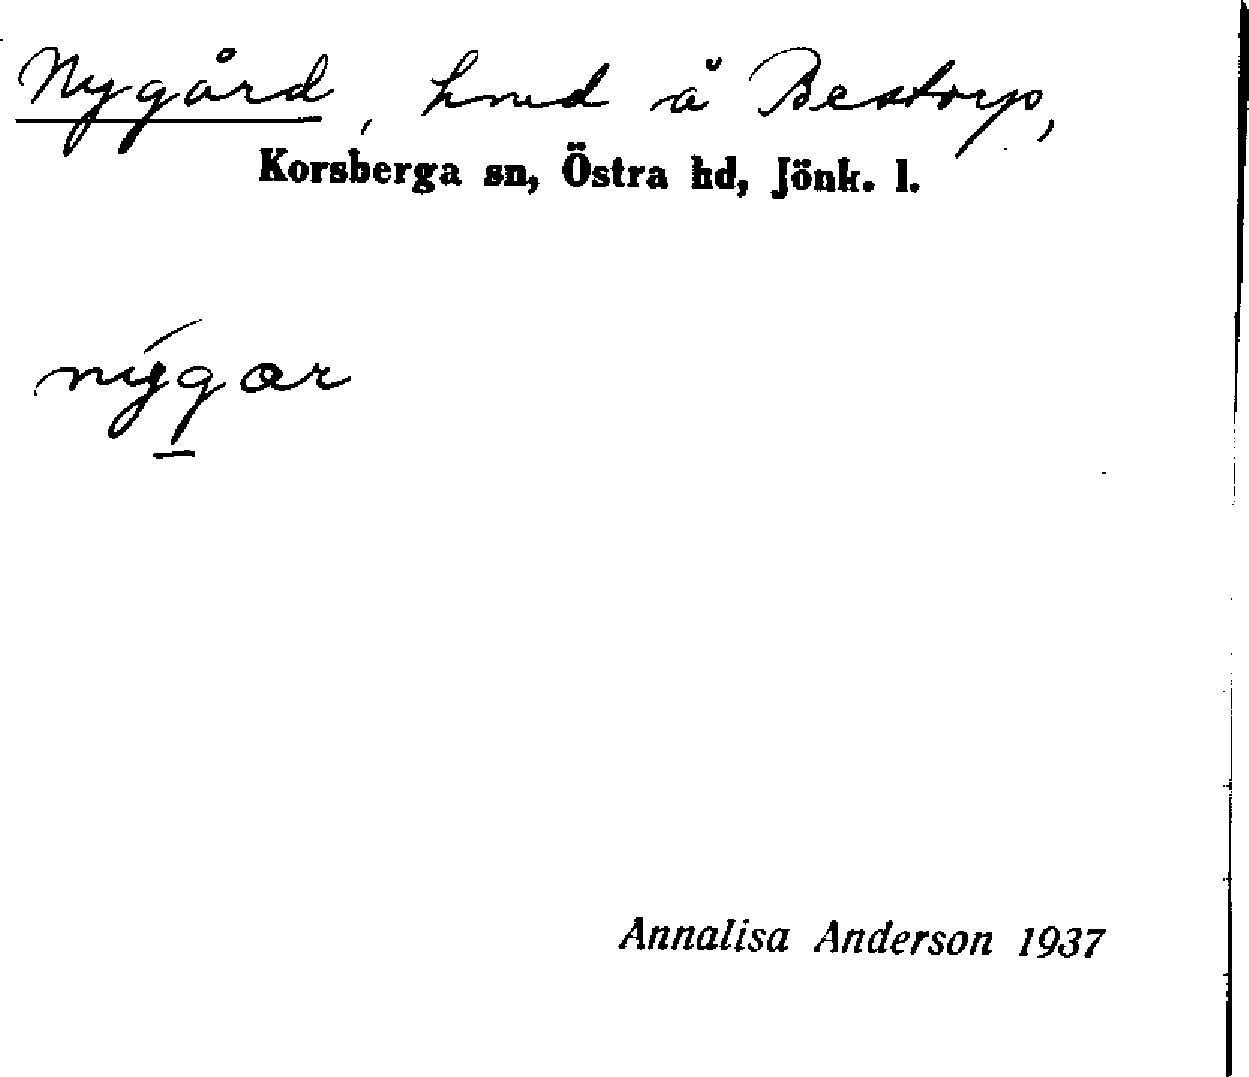 Nygård, hmd å Bestorp,
Korsberga sn, Östra hd, Jönk. l.
nýgar
Annalisa Anderson 1937